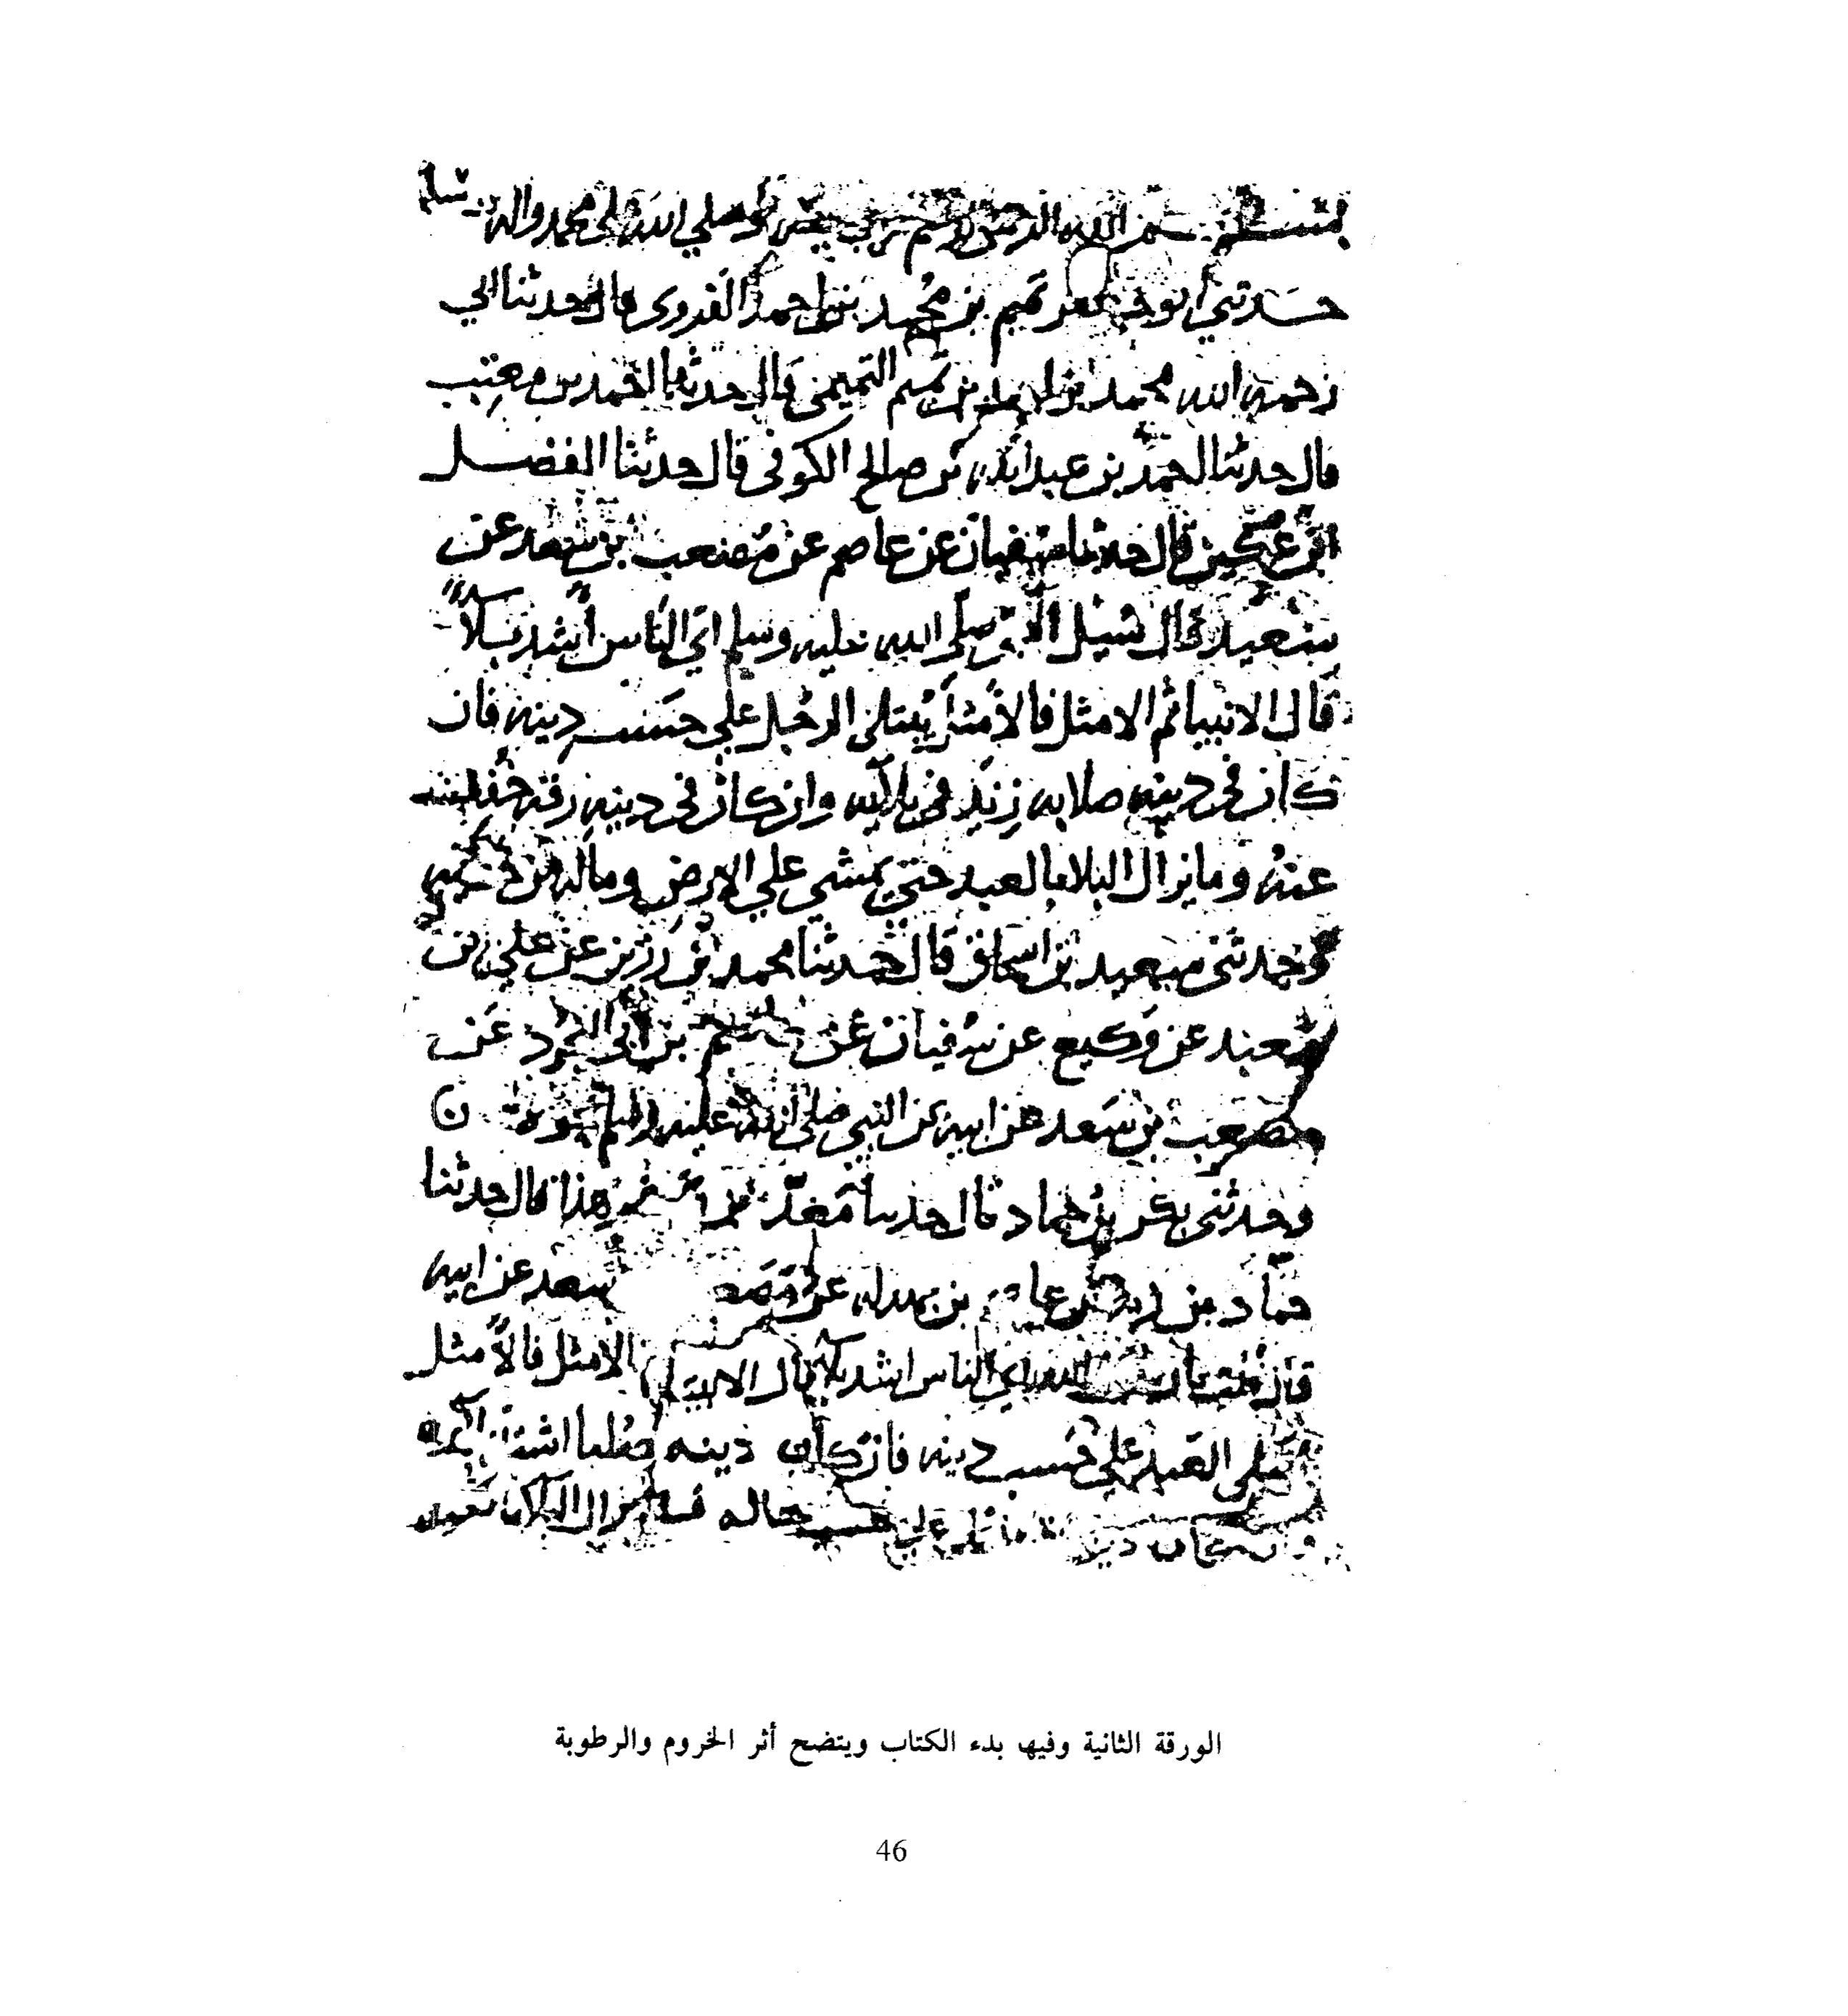 بسم الله الرحمن الرحيم وصلى الله على محمد واله
حدثني ابو جعفر تميم بن محمد بن احمد القروى قال حدثنا ابي
رحمه الله محمد بن احمد بن تميم التميمي قال حدثنا احمد بن معتب
قال حدثنا احمد بن عبد الله بن صالح الكوفى قال حدثنا الفضل
ابن دكين قال حدثنا سفيان عن عاصم عن مصعب بن سعد عن
سعيد قال سئل النبي صلى الله عليه وسلم اي الناس اشد بلاً
قال الانبيا ثم الامثل فالأمثل يبتلى الرجل على حسب دينه فان
كان في دينه صلابه زيد في بلايه وان كان في دينه رقة خفف
عنه وما يزال البلا بالعبد حتى يمشى على الارض وما له من
وحدثنى سعيد بن اسحاق قال حدثنا محمد بن رزين عن علي بن
معبد عن وكيع عن سفيان عن عاصم بن ابى النجود عن
مصعب بن سعد عن ابيه عن النبي صلى الله عليه وسلم نحوه ن
وحدثنى بكر بن حماد قال حدثنا هذا قال حدثنا
حماد بن زيد عن عاصم بن بهدله عن مصعب سعد عن ابيه
قال قلت يا رسول الله اي الناس اشد بلا قال الانبيا الامثل فالأمثل
يبتلى العبد على حسب دينه فان كان دينه صلبا اشتد
كان دينه على حسب حاله فما يزال البلا
الورقة الثانية وفيها بدء الكتاب ويتضح أثر الخروم والرطوبة
46